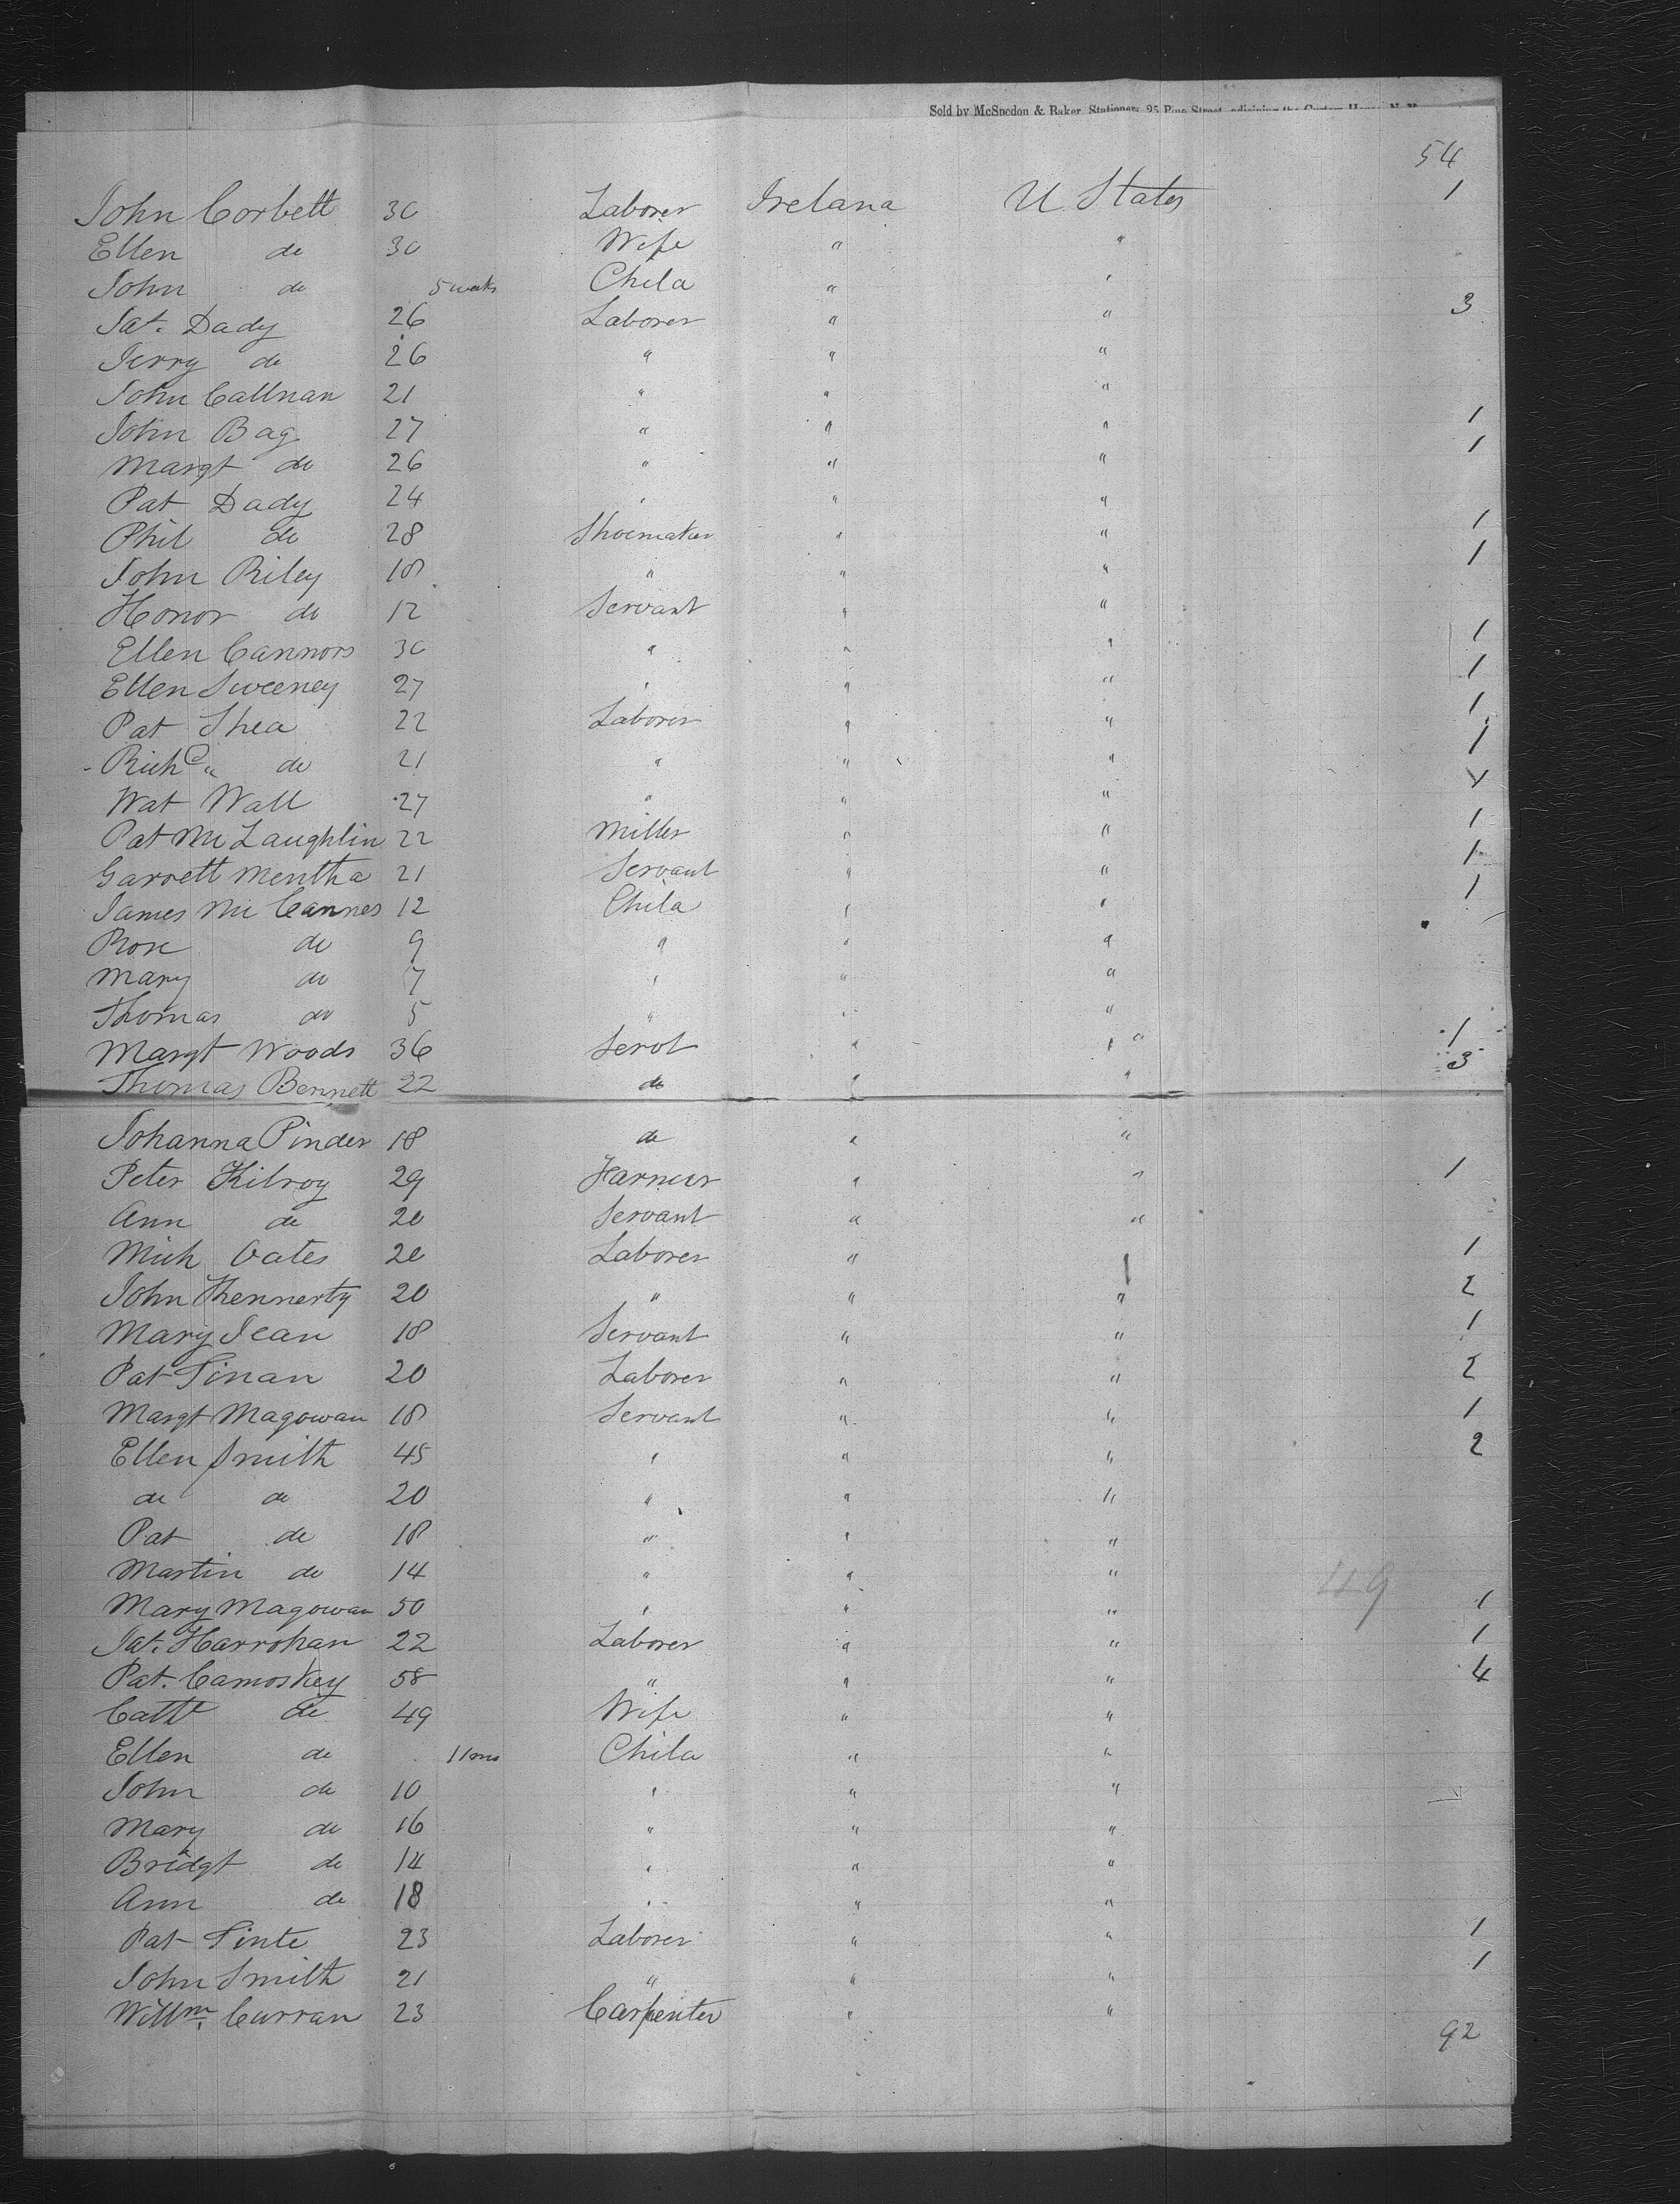 Sold by McSpedon & Baker, Stationers 25 Pine Street, adjoining the Custom House, N. Y.
54
John Corbett 30 Laborer Ireland U. States 1
Ellen do 30 Wife " "
John do 5 weeks Child " "
Pat. Dady 26 Laborer " " 3
Jerry do 26 " " "
John Callnan 21 " " "
John Bag 27 " " " 1
Margt do 26 " " " 1
Pat Dady 24 " " "
Phil do 28 Shoemaker " " 1
John Riley 18 " " " 1
Honor do 12 Servant " "
Ellen Cannors 30 " " " 1
Ellen Sweeney 27 " " " 1
Pat Shea 22 Laborer " " 1
Richd " do 21 " " " 1
Wat Wall 27 " " "
Pat McLaughlin 22 Miller " " 1
Garrett Mentha 21 Servant " " 1
James McCannes 12 Child " " 1
Rose do 9 " " "
Mary do 7 " " "
Thomas do 5 " " "
Margt Woods 36 Servt " " 1
Thomas Bennett 22 do " " 3
Johanna Pinder 18 do " "
Peter Kilroy 29 Farmer " " 1
Ann do 20 Servant " "
Mich Oates 20 Laborer " 1
John Hennerty 20 " " " 2
Mary Jean 18 Servant " " 1
Pat Finan 20 Laborer " " 2
Margt Magowan 18 Servant " " 1
Ellen Smith 45 " " " 2
do do 20 " " "
Pat do 18 " " "
Martin do 14 " " "
49
Mary Magowan 50 " " " 1
Pat. Harrohan 22 Laborer " " 1
Pat. Camoskey 58 " " " 4
Cathe do 49 Wife " "
Ellen do 11 ms Child " "
John do 10 " " "
Mary do 16 " " "
Bridgt do 14 " " "
Ann do 18 " " "
Pat Tinte 23 Laborer " " 1
John Smith 21 " " " 1
Willm. Curran 23 Carpenter " "
92